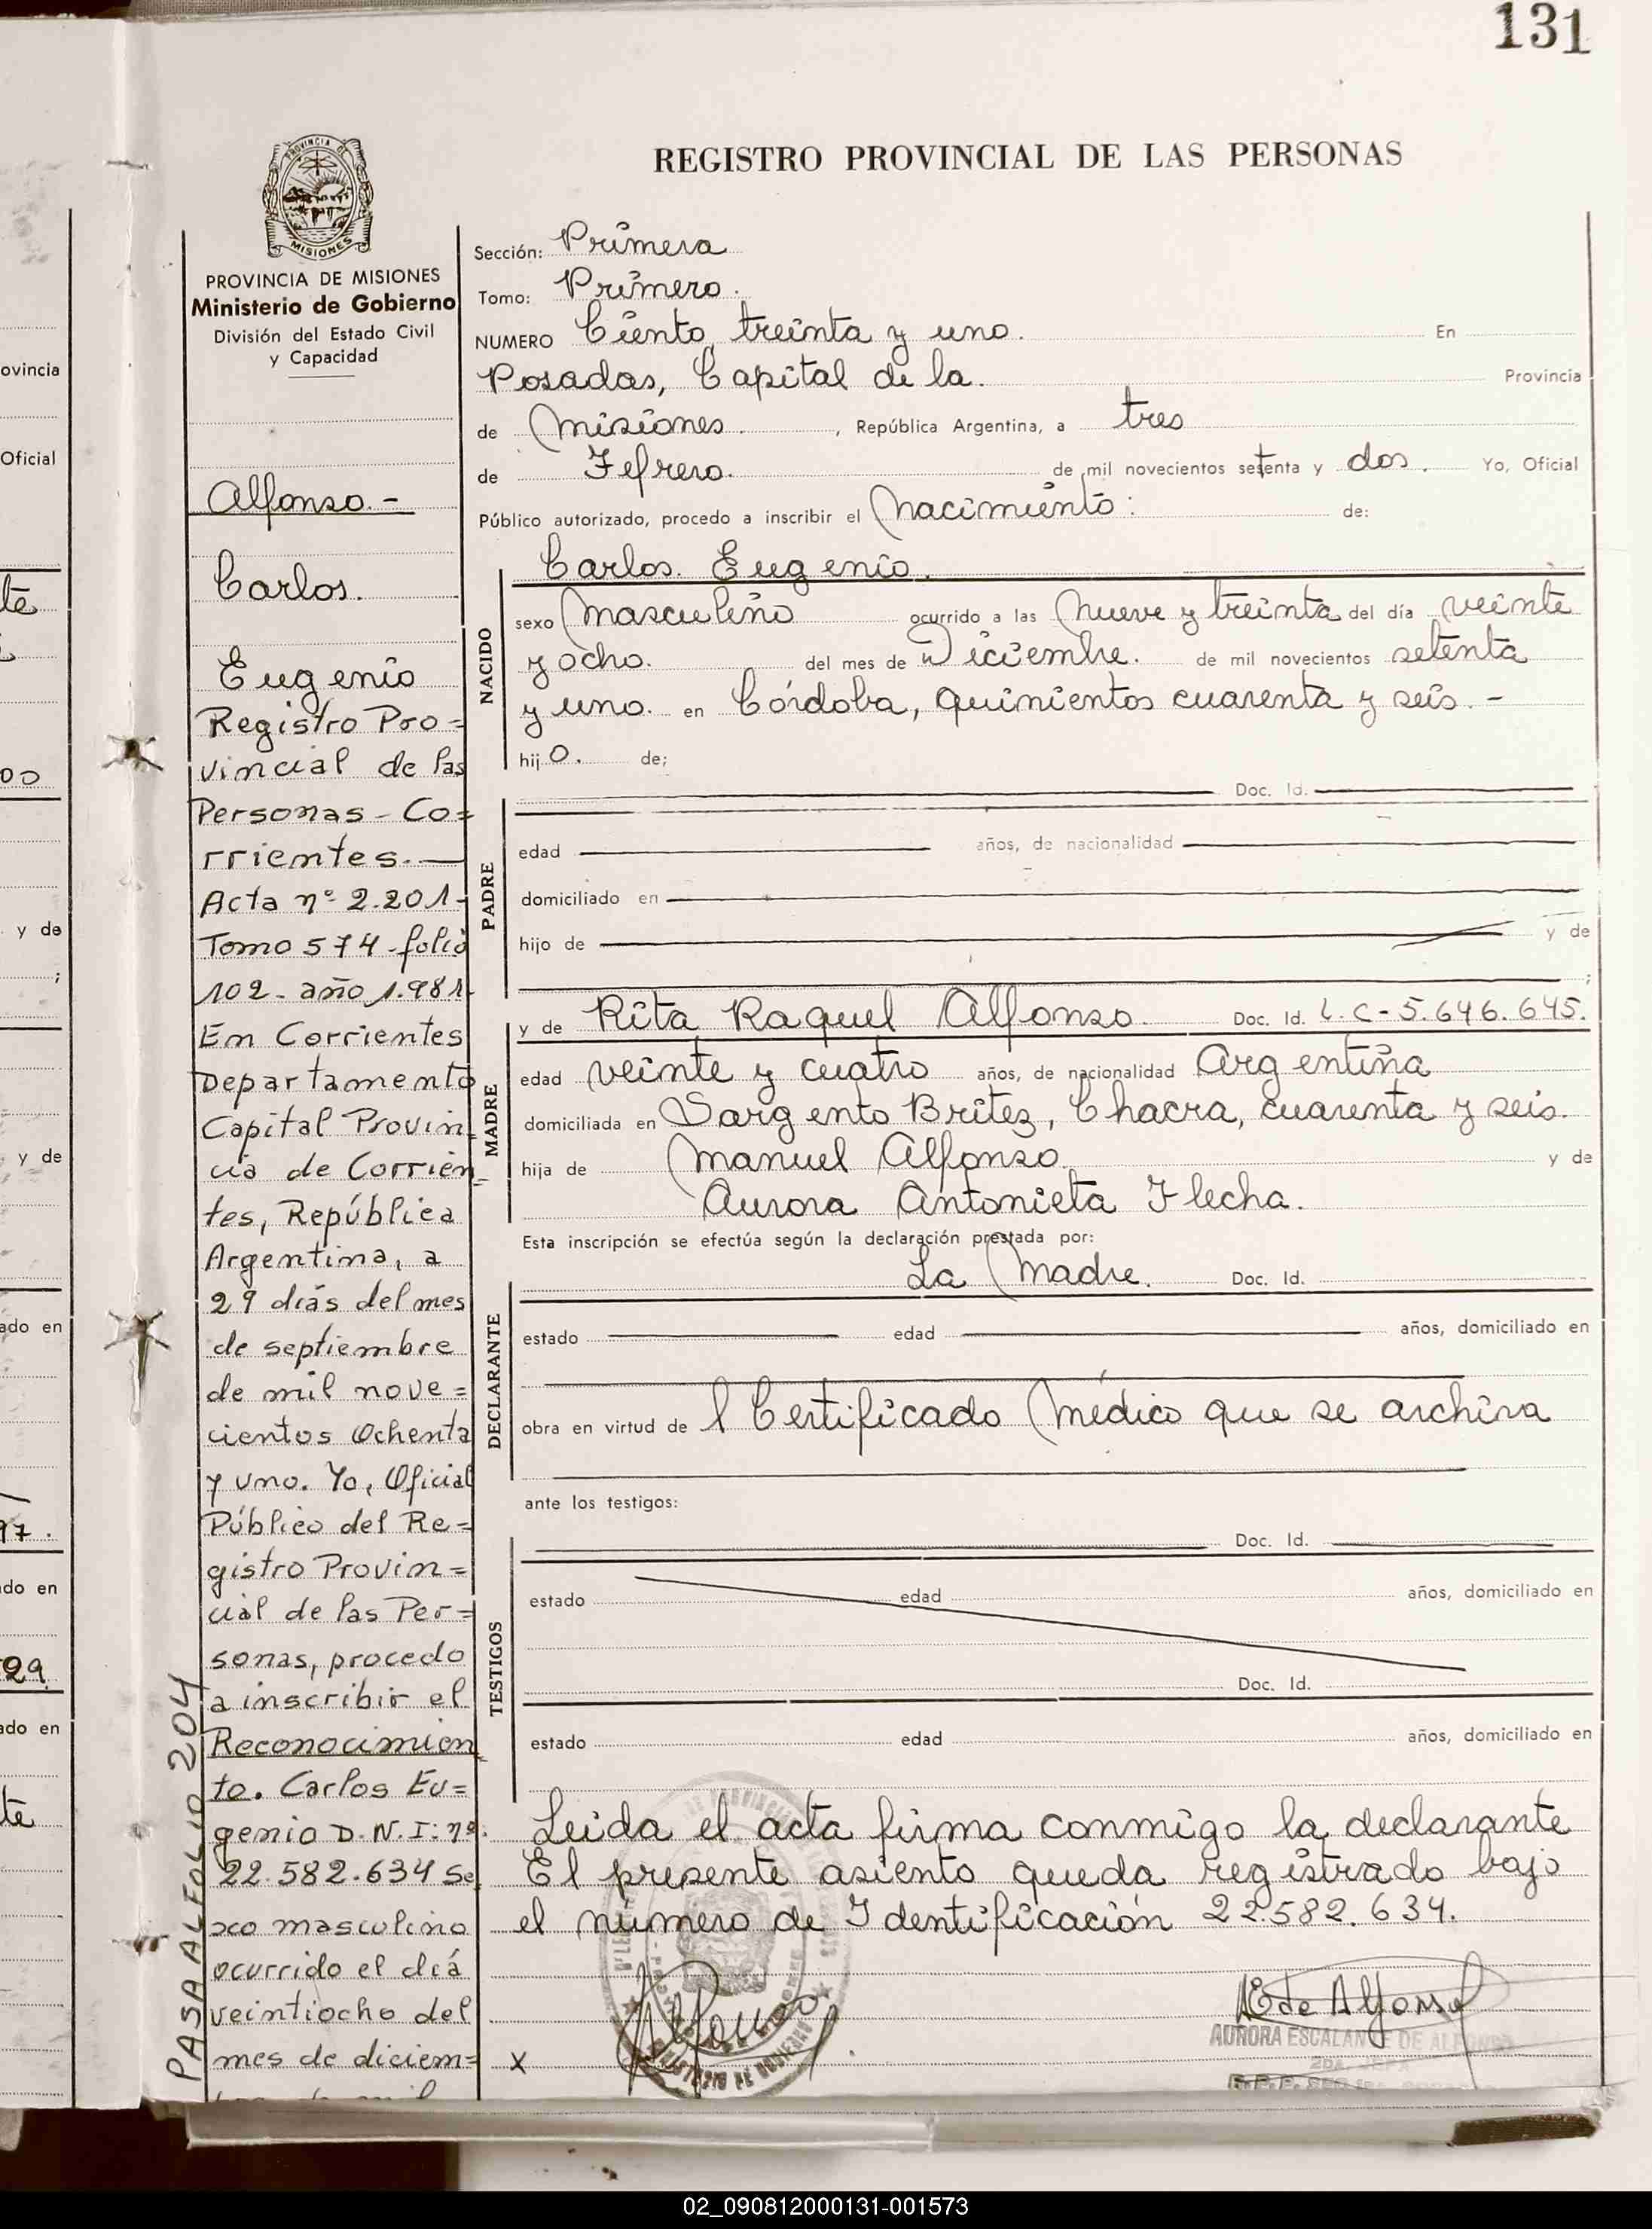 131
REGISTRO PROVINCIAL DE LAS PERSONAS
PROVINCIA DE
MISIONES
PROVINCIA DE MISIONES
Ministerio de Gobierno
División del Estado Civil
y Capacidad
Alfonso.-
Carlos.
Eugenio
Registro Pro=
vincial de las
Personas - Co=
rrientes.—
Acta nº 2.201-
Tomo 574-folio
102- año 1.981-
En Corrientes
Departamento
Capital Provin_
cia de Corrien_
tes, República
Argentina, a
29 días del mes
de septiembre
de mil nove=
cientos Ochenta
y uno. Yo, Oficial
Público del Re=
gistro Provin=
cial de las Per=
sonas, procedo
a inscribir el
Reconocimien_
to. Carlos Eu=
genio D.N.I: nº.
22.582.634 Se_
xo masculino
ocurrido el día
veintiocho del
mes de diciem=
PASA AL FOLIO 204
Sección: Primera
Tomo: Primero.
NUMERO Ciento treinta y uno. En
Posadas, Capital de la. Provincia
de Misiones. , República Argentina, a tres
de Febrero. de mil novecientos setenta y dos. Yo, Oficial
Público autorizado, procedo a inscribir el Nacimiento: de:
Carlos. Eugenio.
NACIDO
sexo Masculino ocurrido a las Nueve y treinta del día veinte
y ocho. del mes de Diciembre. de mil novecientos setenta
y uno. en Córdoba, quinientos cuarenta y seis.-
hijo. de;
PADRE
Doc. Id.
edad años, de nacionalidad
domiciliado en
hijo de y de
;
MADRE
y de Rita Raquel Alfonso. Doc. Id. L.C-5.646.645.
edad veinte y cuatro años, de nacionalidad Argentina
domiciliada en Sargento Britez, Chacra, cuarenta y seis.
hija de Manuel Alfonso y de
Aurora Antonieta Flecha.
Esta inscripción se efectúa según la declaración prestada por:
La Madre. Doc. Id.
DECLARANTE
estado edad años, domiciliado en
obra en virtud de l Certificado Médico que se archiva
ante los testigos:
TESTIGOS
Doc. Id.
estado edad años, domiciliado en
Doc. Id.
estado edad años, domiciliado en
Leida el acta firma conmigo la declarante
El presente asiento queda registrado bajo
el numero de Identificación 22.582.634.
x
RAlfonso
AE de Alfonso
AURORA ESCALANTE DE ALFONSO
ovincia
Oficial
te
00
y de
;
y de
ado en
97.
do en
29
ado en
te
02_090812000131-001573